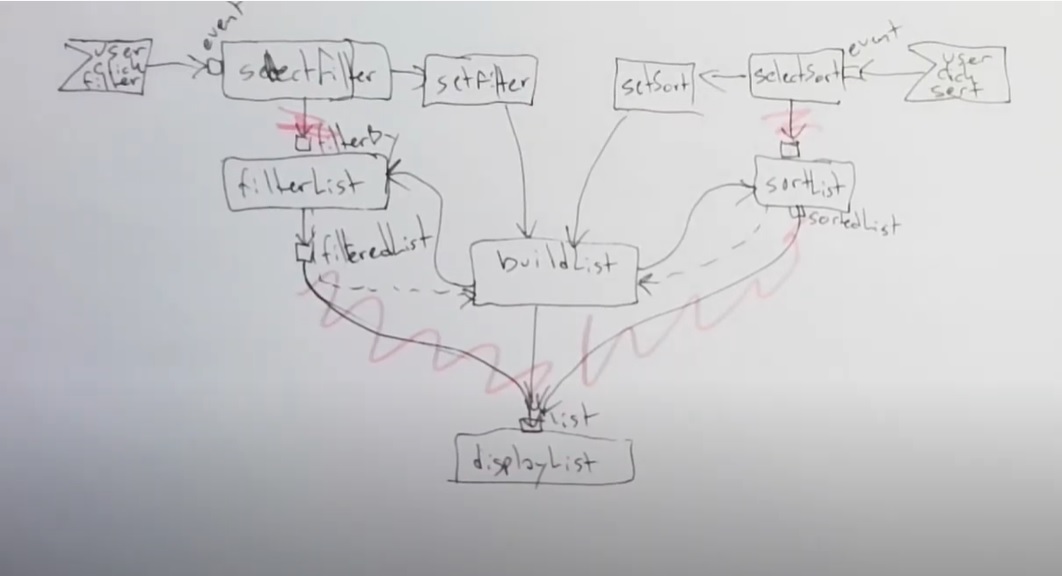 event
user
click
filter
selectFilter
setFilter
setSort
selectSort
event
user
click
sort
filterBy
filterList
sortList
sortedList
filteredList
buildList
list
displayList